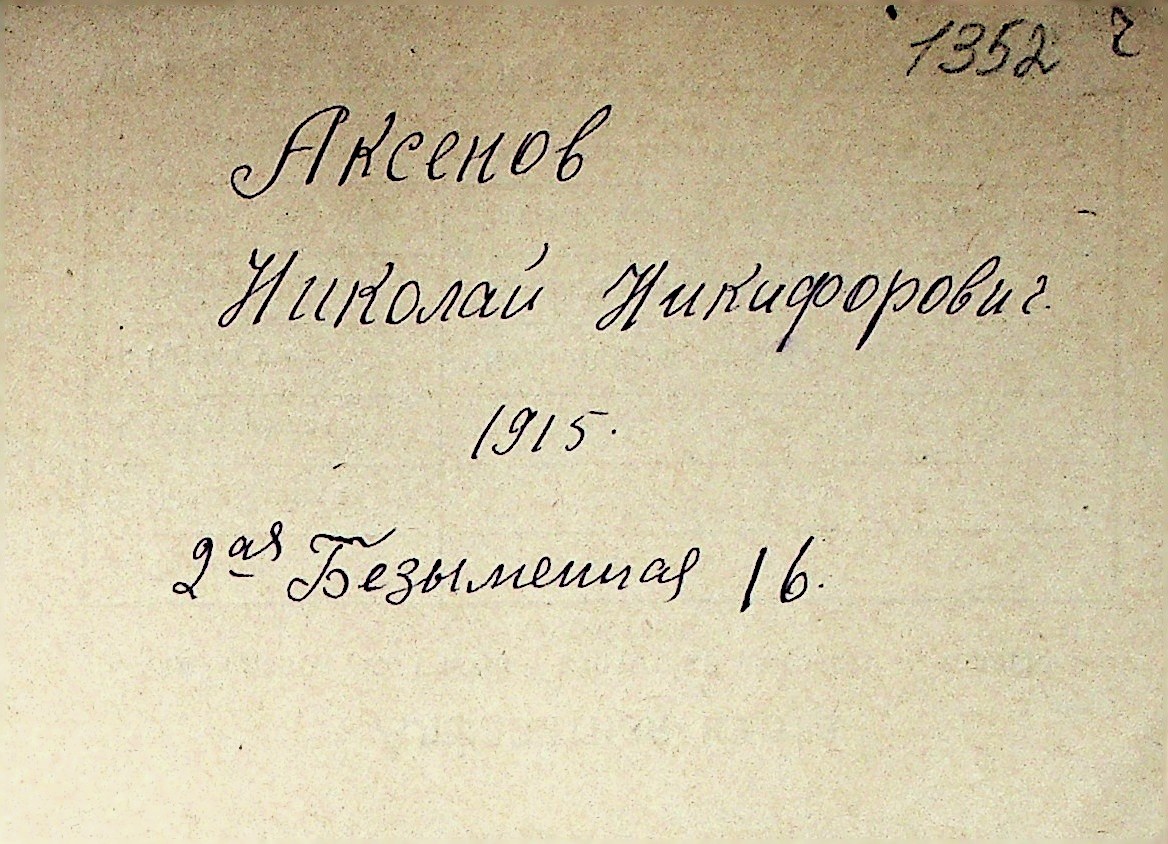 1352 г
Аксенов
Николай Никифорович
1915.
2ая Безыменная 16.